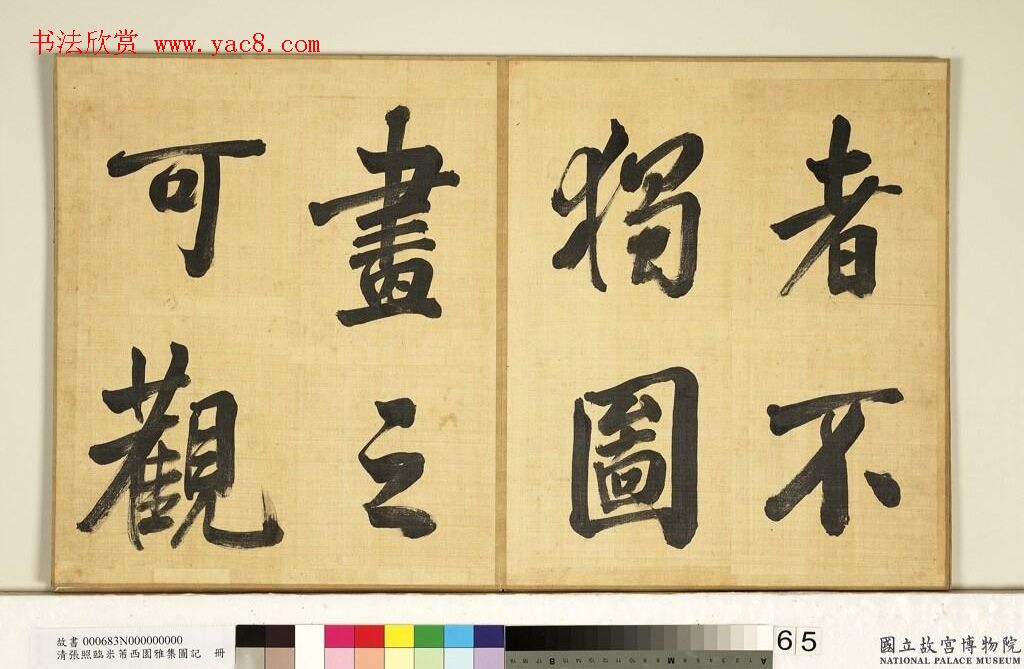 书法欣赏 www.yac8.com
者不
獨圖
畫之
可觀
故書 000683N000000000
清張照臨米芾西園雅集圖記 冊
65
國立故宮博物院
NATIONAL PALACE MUSEUM